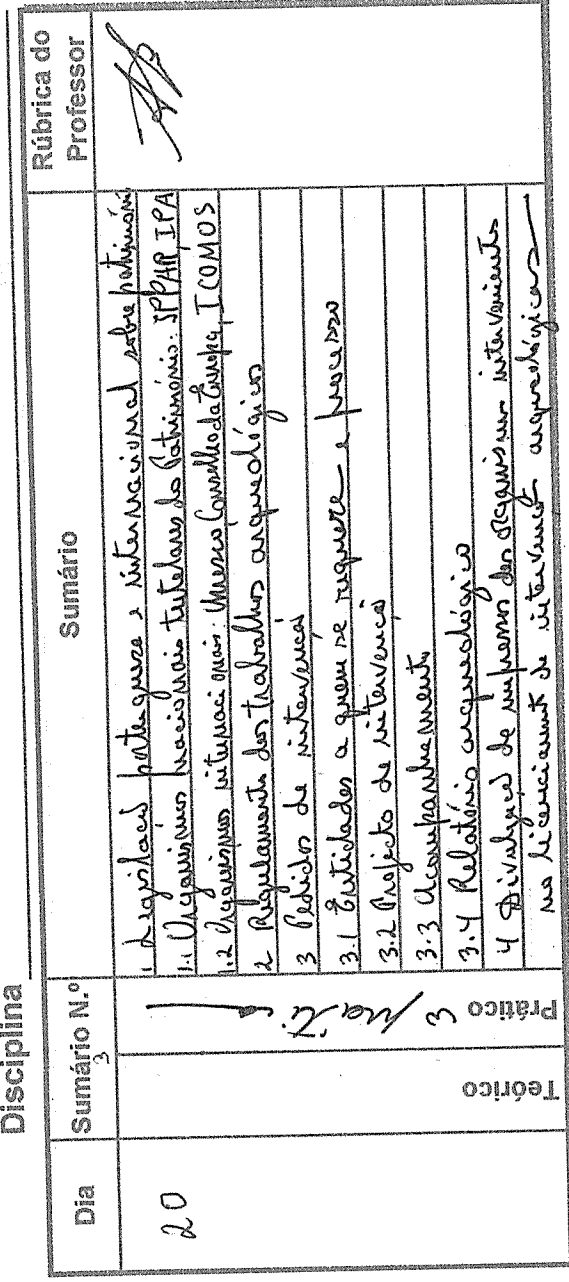 Disciplina
Dia
Sumário N.º
3
Sumário
Rúbrica do
Professor
Teórico
Prático
20
3 pratica
1. Legislação portuguesa e internacional sobre património
1.1 Organismos nacionais tutelares do Património: IPPAR IPA
1.2 Organismos internacionais: Unesco Conselho da Europa, ICOMOS
2 Regulamento dos trabalhos arqueológicos
3 Pedidos de intervenção
3.1 Entidades a quem se requere e processo
3.2 Projecto de intervenção
3.3 Acompanhamento
3.4 Relatório arqueológico
4 Divulgação de impressos dos organismos intervenientes
no licenciamento de intervenções arqueológicas